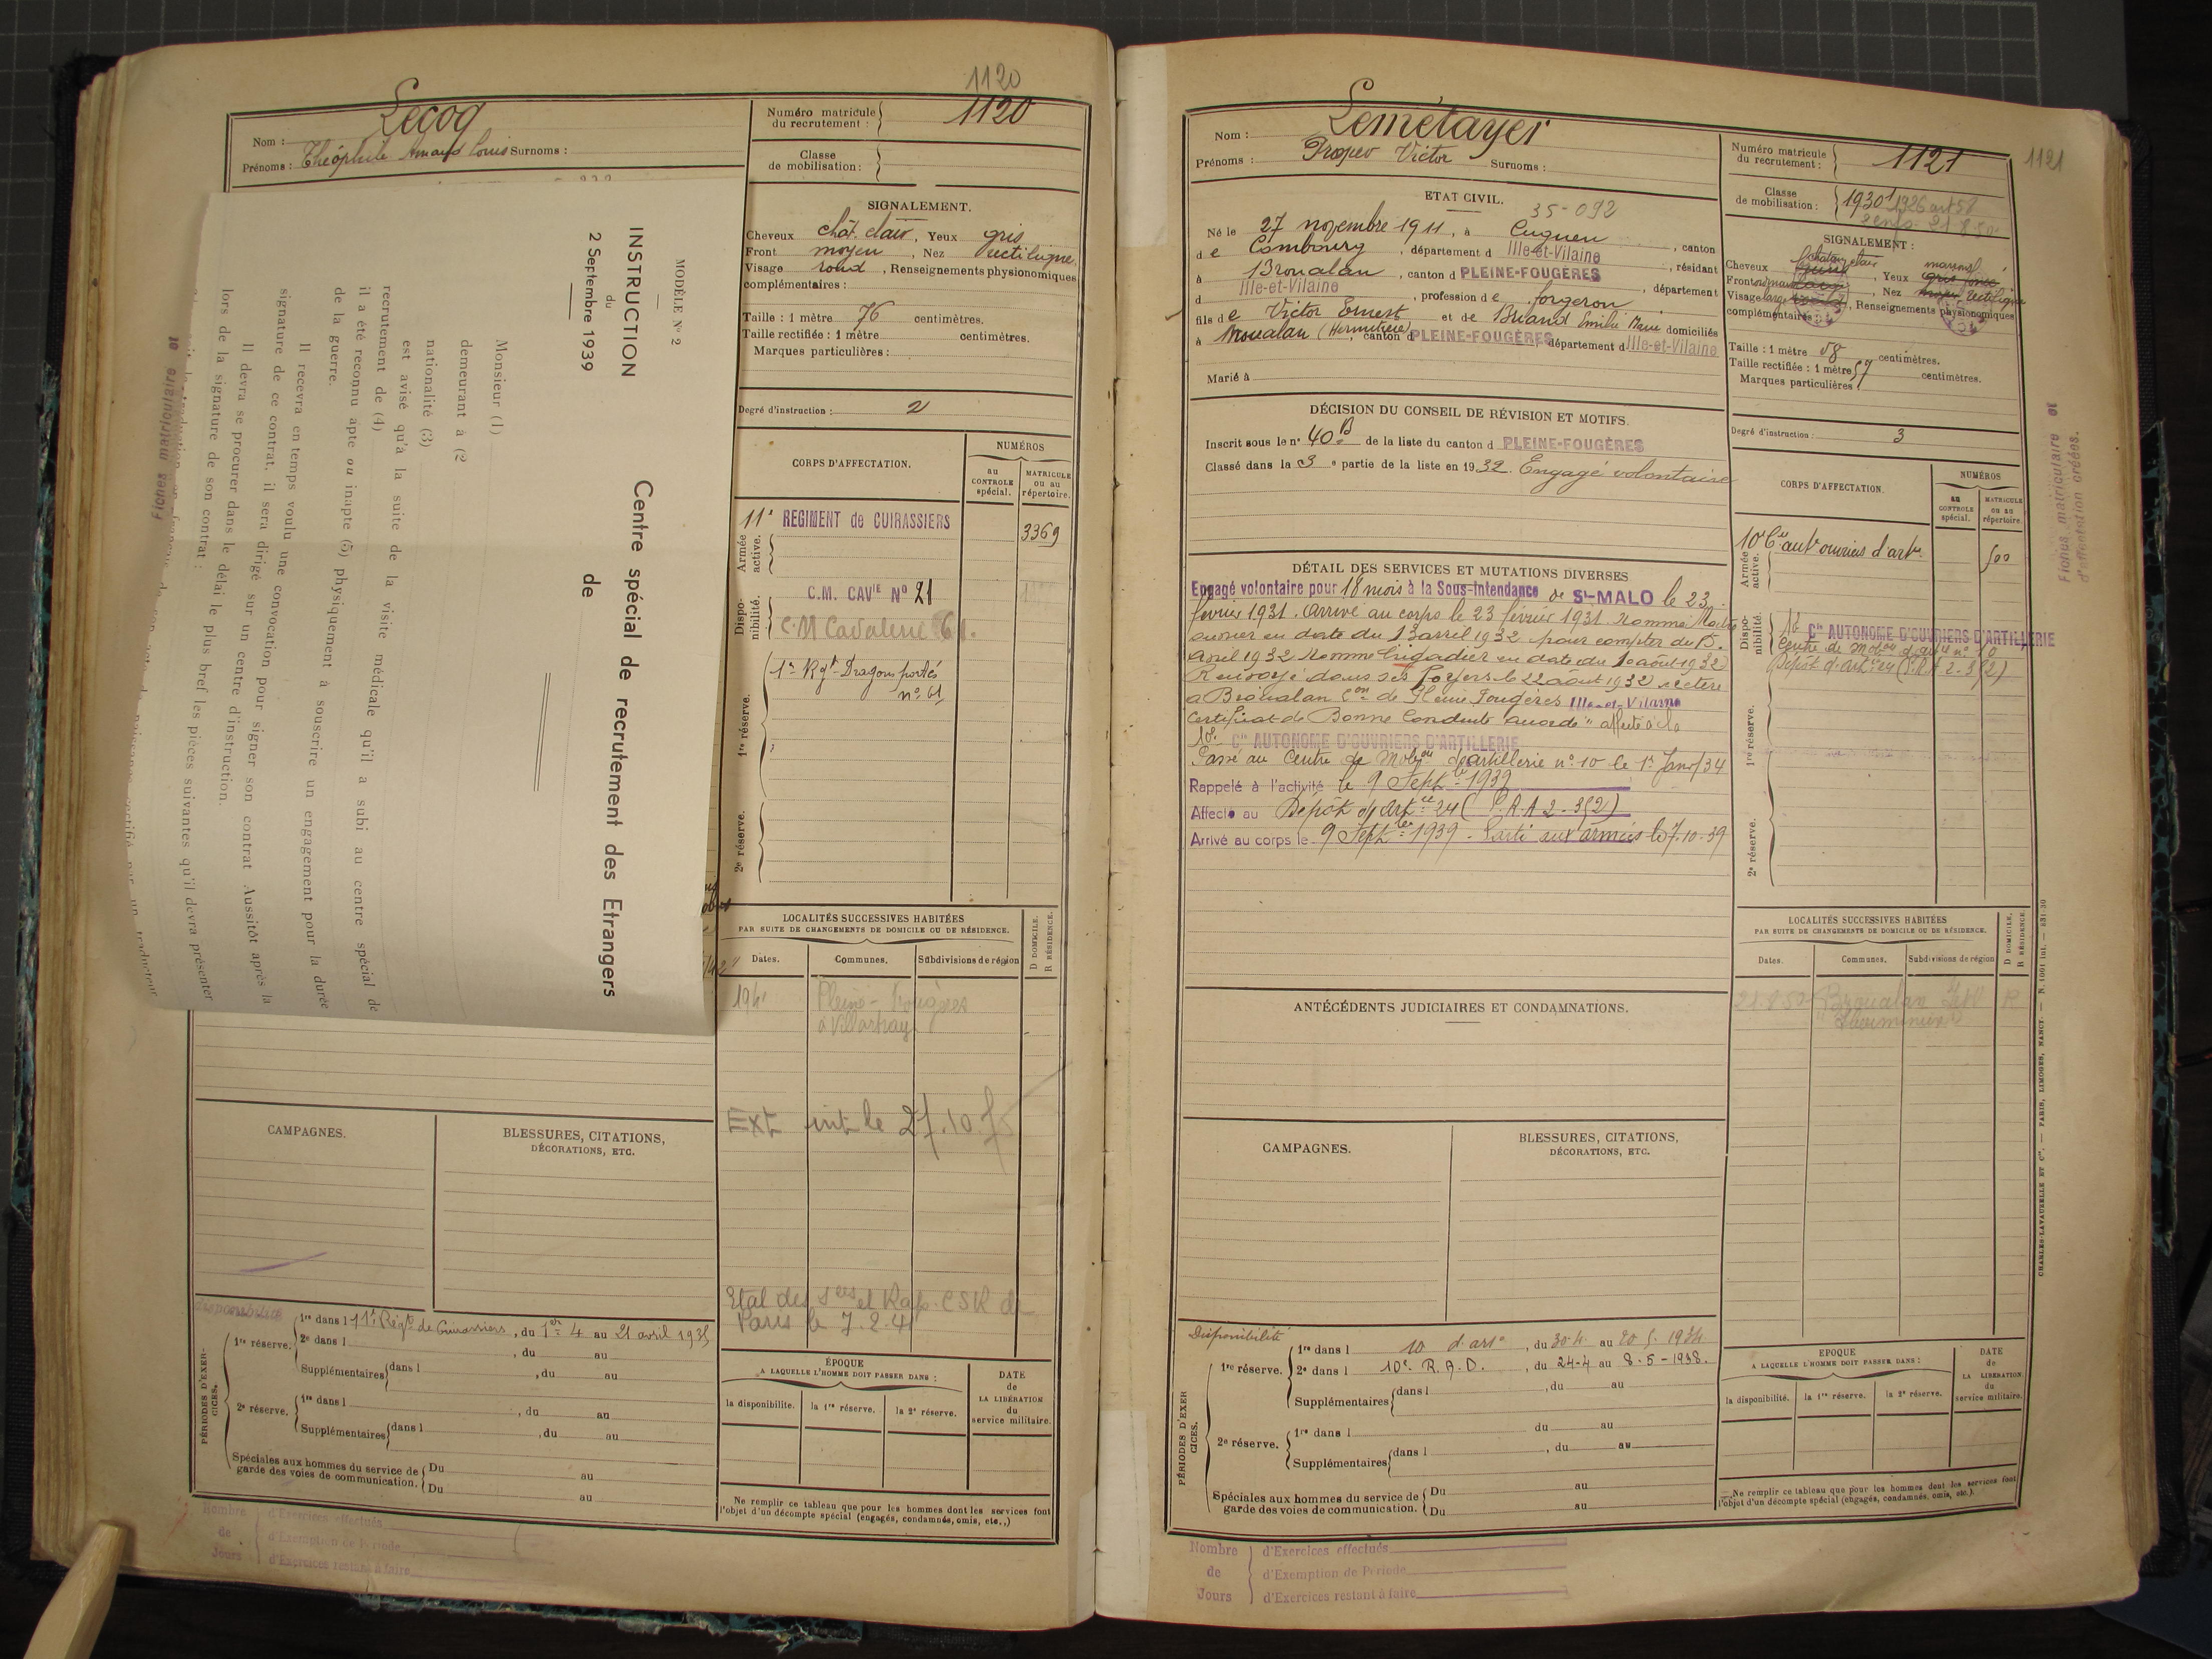 1120
Nom : Lecoq
Prénoms : Théophile Amand Louis Surnoms :
Numéro matricule du recrutement : 1120
Classe de mobilisation :
MODÈLE N° 2
INSTRUCTION
du
2 Septembre 1939
Centre spécial de recrutement des Etrangers
de
Monsieur (1)
demeurant à (2
nationalité (3)
est avisé qu'à la suite de la visite médicale qu'il a subi au centre spécial de
recrutement de (4)
il a été reconnu apte ou inapte (5) physiquement à souscrire un engagement pour la durée
de la guerre.
Il recevra en temps voulu une convocation pour signer son contrat. Aussitôt après la
signature de ce contrat, il sera dirigé sur un centre d'instruction.
Il devra se procurer dans le délai le plus bref les pièces suivantes qu'il devra présenter
lors de la signature de son contrat :
Fiches matriculaire et
SIGNALEMENT.
Cheveux chât. clair, Yeux gris
Front moyen, Nez rectiligne
Visage rond, Renseignements physionomiques
complémentaires :
Taille : 1 mètre 76 centimètres.
Taille rectifiée : 1 mètre centimètres.
Marques particulières :
Degré d'instruction : 2
CORPS D'AFFECTATION.
NUMÉROS
au CONTROLE spécial.
MATRICULE ou au répertoire.
Armée active.
11e REGIMENT de CUIRASSIERS 3369
Disponibilité.
C.M. CAVIE N° 21
C.M Cavalerie 61.
1re réserve.
1er Rgt Dragons portés
n° 61
2e réserve.
LOCALITÉS SUCCESSIVES HABITÉES
PAR SUITE DE CHANGEMENTS DE DOMICILE OU DE RÉSIDENCE.
Dates. Communes. Subdivisions de région
D DOMICILE.
R RÉSIDENCE.
Pleine-Fougères
Ext
Etat des Sces et Rap. CSR de
Paris le 7.2.41
CAMPAGNES.
BLESSURES, CITATIONS,
DÉCORATIONS, ETC.
disponibilité
PÉRIODES D'EXERCICES.
1re réserve. 1re dans l 11e Régt de Cuirassiers, du 1er 4 au 21 avril 1935
2e dans l , du au
Supplémentaires dans l , du au
2e réserve. 1re dans l , du au
Supplémentaires dans l , du au
Spéciales aux hommes du service de
garde des voies de communication. Du au
Du au
Nombre de Jours
d'Exercices effectués
d'Exemption de Période
d'Exercices restant à faire
ÉPOQUE
A LAQUELLE L'HOMME DOIT PASSER DANS :
la disponibilité. la 1re réserve. la 2e réserve.
DATE
de
LA LIBÉRATION
du
service militaire.
Ne remplir ce tableau que pour les hommes dont les services font
l'objet d'un décompte spécial (engagés, condamnés, omis, etc.,)
Nom : Lemétayer
Prénoms : Prosper Victor Surnoms :
Numéro matricule du recrutement : 1121
1121
Classe de mobilisation : 1930
1926 art 58
2 enfts 21.8.50
ETAT CIVIL.
35-092
Né le 27 novembre 1911, à Cuguen, canton
de Combourg, département d Ille-et-Vilaine, résidant
à Broualan, canton d PLEINE-FOUGÈRES, département
d Ille-et-Vilaine, profession de forgeron
fils de Victor Ernest et de Briand Emilie Marie domiciliés
à Broualan (Hermitière), canton d PLEINE-FOUGÈRES département d Ille-et-Vilaine
Marié à
SIGNALEMENT :
Cheveux châtain clair, Yeux marrons
Front, Nez rectiligne
Visage large, Renseignements physionomiques
complémentaires :
Taille : 1 mètre 58 centimètres.
Taille rectifiée : 1 mètre 57 centimètres.
Marques particulières :
Degré d'instruction : 3
DÉCISION DU CONSEIL DE RÉVISION ET MOTIFS.
Inscrit sous le n° 40 B de la liste du canton d PLEINE-FOUGÈRES
Classé dans la 3e partie de la liste en 1932. Engagé volontaire
DÉTAIL DES SERVICES ET MUTATIONS DIVERSES
Engagé volontaire pour 18 mois à la Sous-Intendance de St-MALO le 23
février 1931. Arrivé au corps le 23 février 1931. Nommé Maître
ouvrier en date du 13 avril 1932 pour compter du 15
avril 1932 Nommé brigadier en date du 10 août 1932
Renvoyé dans ses foyers le 22 août 1932 se retire
à Broualan Con de Pleine Fougères Ille-et-Vilaine
Certificat de Bonne Conduite "accordé" affecté à la
10e Cie AUTONOME D'OUVRIERS D'ARTILLERIE
Passé au Centre de Mobon d'artillerie n° 10 le 1er Janv 34
Rappelé à l'activité le 9 Septbre 1939
Affecté au Dépôt d'Artie 24 (P.R.A 2-352)
Arrivé au corps le 9 Septbre 1939 - Parti aux armées le 7.10.39
CORPS D'AFFECTATION.
NUMÉROS
au CONTROLE spécial.
MATRICULE ou au répertoire.
Armée active.
10e Cie aute ouvriers d'artie 500
Disponibilité.
10e Cie AUTONOME D'OUVRIERS D'ARTILLERIE
Centre de Mobon d'artie n° 10
Dépôt d'artie 24 (P.R.A 2-352)
1re réserve.
2e réserve.
Fiches matriculaire et
d'affectation créées.
ANTÉCÉDENTS JUDICIAIRES ET CONDAMNATIONS.
LOCALITÉS SUCCESSIVES HABITÉES
PAR SUITE DE CHANGEMENTS DE DOMICILE OU DE RÉSIDENCE.
Dates. Communes. Subdivisions de région
D DOMICILE.
R RÉSIDENCE.
21.8.50 Broualan I&V R
CAMPAGNES.
BLESSURES, CITATIONS,
DÉCORATIONS, ETC.
Disponibilité
PÉRIODES D'EXERCICES.
1re réserve. 1re dans l 10 d'artie, du 30.4. au 20.5.1934
2e dans l 10e. R.A.D., du 24-4 au 8-5-1938.
Supplémentaires dans l , du au
2e réserve. 1re dans l du au
Supplémentaires dans l , du au
Spéciales aux hommes du service de
garde des voies de communication. Du au
Du au
Nombre de Jours
d'Exercices effectués
d'Exemption de Période
d'Exercices restant à faire
EPOQUE
A LAQUELLE L'HOMME DOIT PASSER DANS :
la disponibilité. la 1re réserve. la 2e réserve.
DATE
de
LA LIBÉRATION
du
service militaire.
Ne remplir ce tableau que pour les hommes dont les services font
l'objet d'un décompte spécial (engagés, condamnés, omis, etc.).
CHARLES-LAVAUZELLE ET Cie. — PARIS, LIMOGES, NANCY. — N. 1001 int. — 831-30